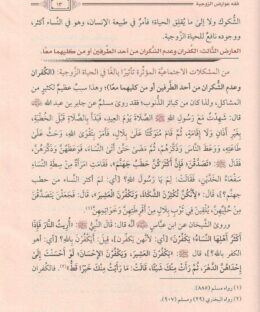 فقه عوارض الزوجية
١٣
الشكوك ولا إلى ما يُقلق الحياة؛ فأمرٌ في طبيعة الإنسان، وهو في النِّساء أكثر،
ووجوده نافعٌ للحياة الزَّوجية.
العارض الثَّالث: الكُفران وعدم الشُّكران من أحد الطَّرفين أو من كليهما معًا.
من المشكلات الاجتماعيَّة المؤثِّرة تأثيرًا بالغًا في الحياة الزَّوجية: (الكُفران
وعدم الشُّكران من أحد الطَّرفين أو من كليهما معًا)؛ وهذا سببٌ عظيمٌ لكثيرٍ من
المشاكل، ولذا كان من كبائر الذُّنوب؛ فقد روى مسلم
قال: شهدتُ مع رسول الله ﷺ الصَّلاة يوم العيد، فبدأ بالصَّلاة قبل الخُطبة
بغير أذانٍ ولا إقامةٍ، ثُمَّ قام متوكِّئًا على بلالٍ، فأمر بتقوى الله، وحثَّ على
طاعته، ووعظ النَّاس وذكَّرهم، ثُمَّ مضى حتَّى أتى النِّساء، فوعظهنَّ وذكَّرهنَّ،
فقال: «تَصَدَّقْنَ؛ فَإِنَّ أَكْثَرَكُنَّ حَطَبُ جَهَنَّمَ»، فقامت امرأةٌ من سِطَةِ النِّساء
سفعاء الخدَّين، فقالت: لِمَ يا رسول الله؟ [أي: لم أكثرنا حطب
جهنَّم؟]، قال: «لأَنَّكُنَّ تُكْثِرْنَ الشَّكَاةَ، وَتَكْفُرْنَ العَشِيرَ»، قال: فجعلن يتصدَّقن
من حُليِّهنَّ، يُلقين في ثوب بلالٍ من أقرطتهنَّ وخواتمهنَّ(١).
وروى الشَّيخان عن ابن عبَّاس قال: قال النَّبي ﷺ: «أُرِيتُ النَّارَ فَإِذَا
أَكْثَرُ أَهْلِهَا النِّسَاءُ؛ يَكْفُرْنَ» [أي: لأنهن يكفرن]، قيل: أيكفرن بالله؟ [أي:
قال: «يَكْفُرْنَ العَشِيرَ، وَيَكْفُرْنَ الإِحْسَانَ، لَوْ أَحْسَنْتَ إِلَى
إِحْدَاهُنَّ الدَّهْرَ، ثُمَّ رَأَتْ مِنْكَ شَيْئًا، قَالَتْ: مَا رَأَيْتُ مِنْكَ خَيْرًا قَطُّ»(٢). فالكُفران
(١) رواه مسلم (٨٨٥).
(٢) رواه البخاري (٢٩) ومسلم (٩٠٧).